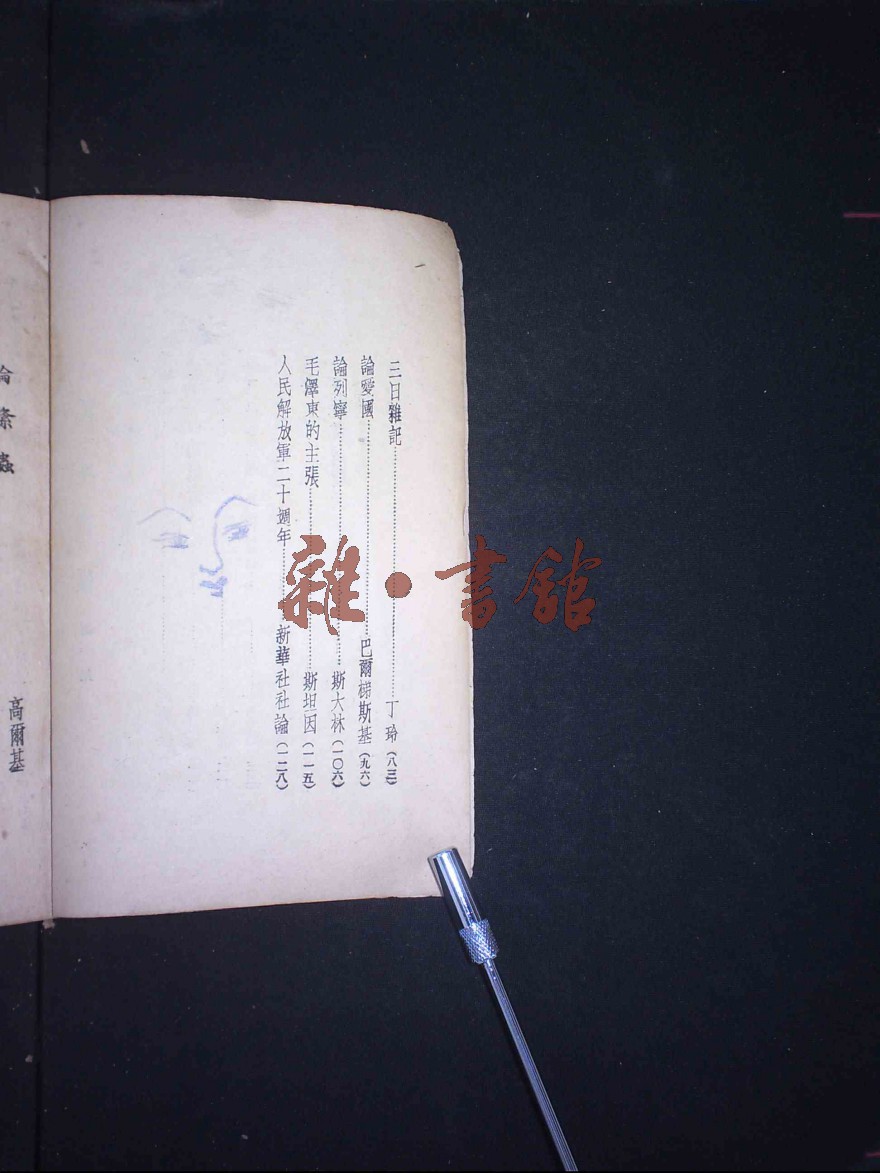 三日雜記………丁玲(八三)
論愛國………巴爾梯斯基(九六)
論列寧………斯大林(一〇六)
毛澤東的主張………斯坦因(一一五)
人民解放軍二十週年………新華社社論(一二八)
高爾基
雜·書館